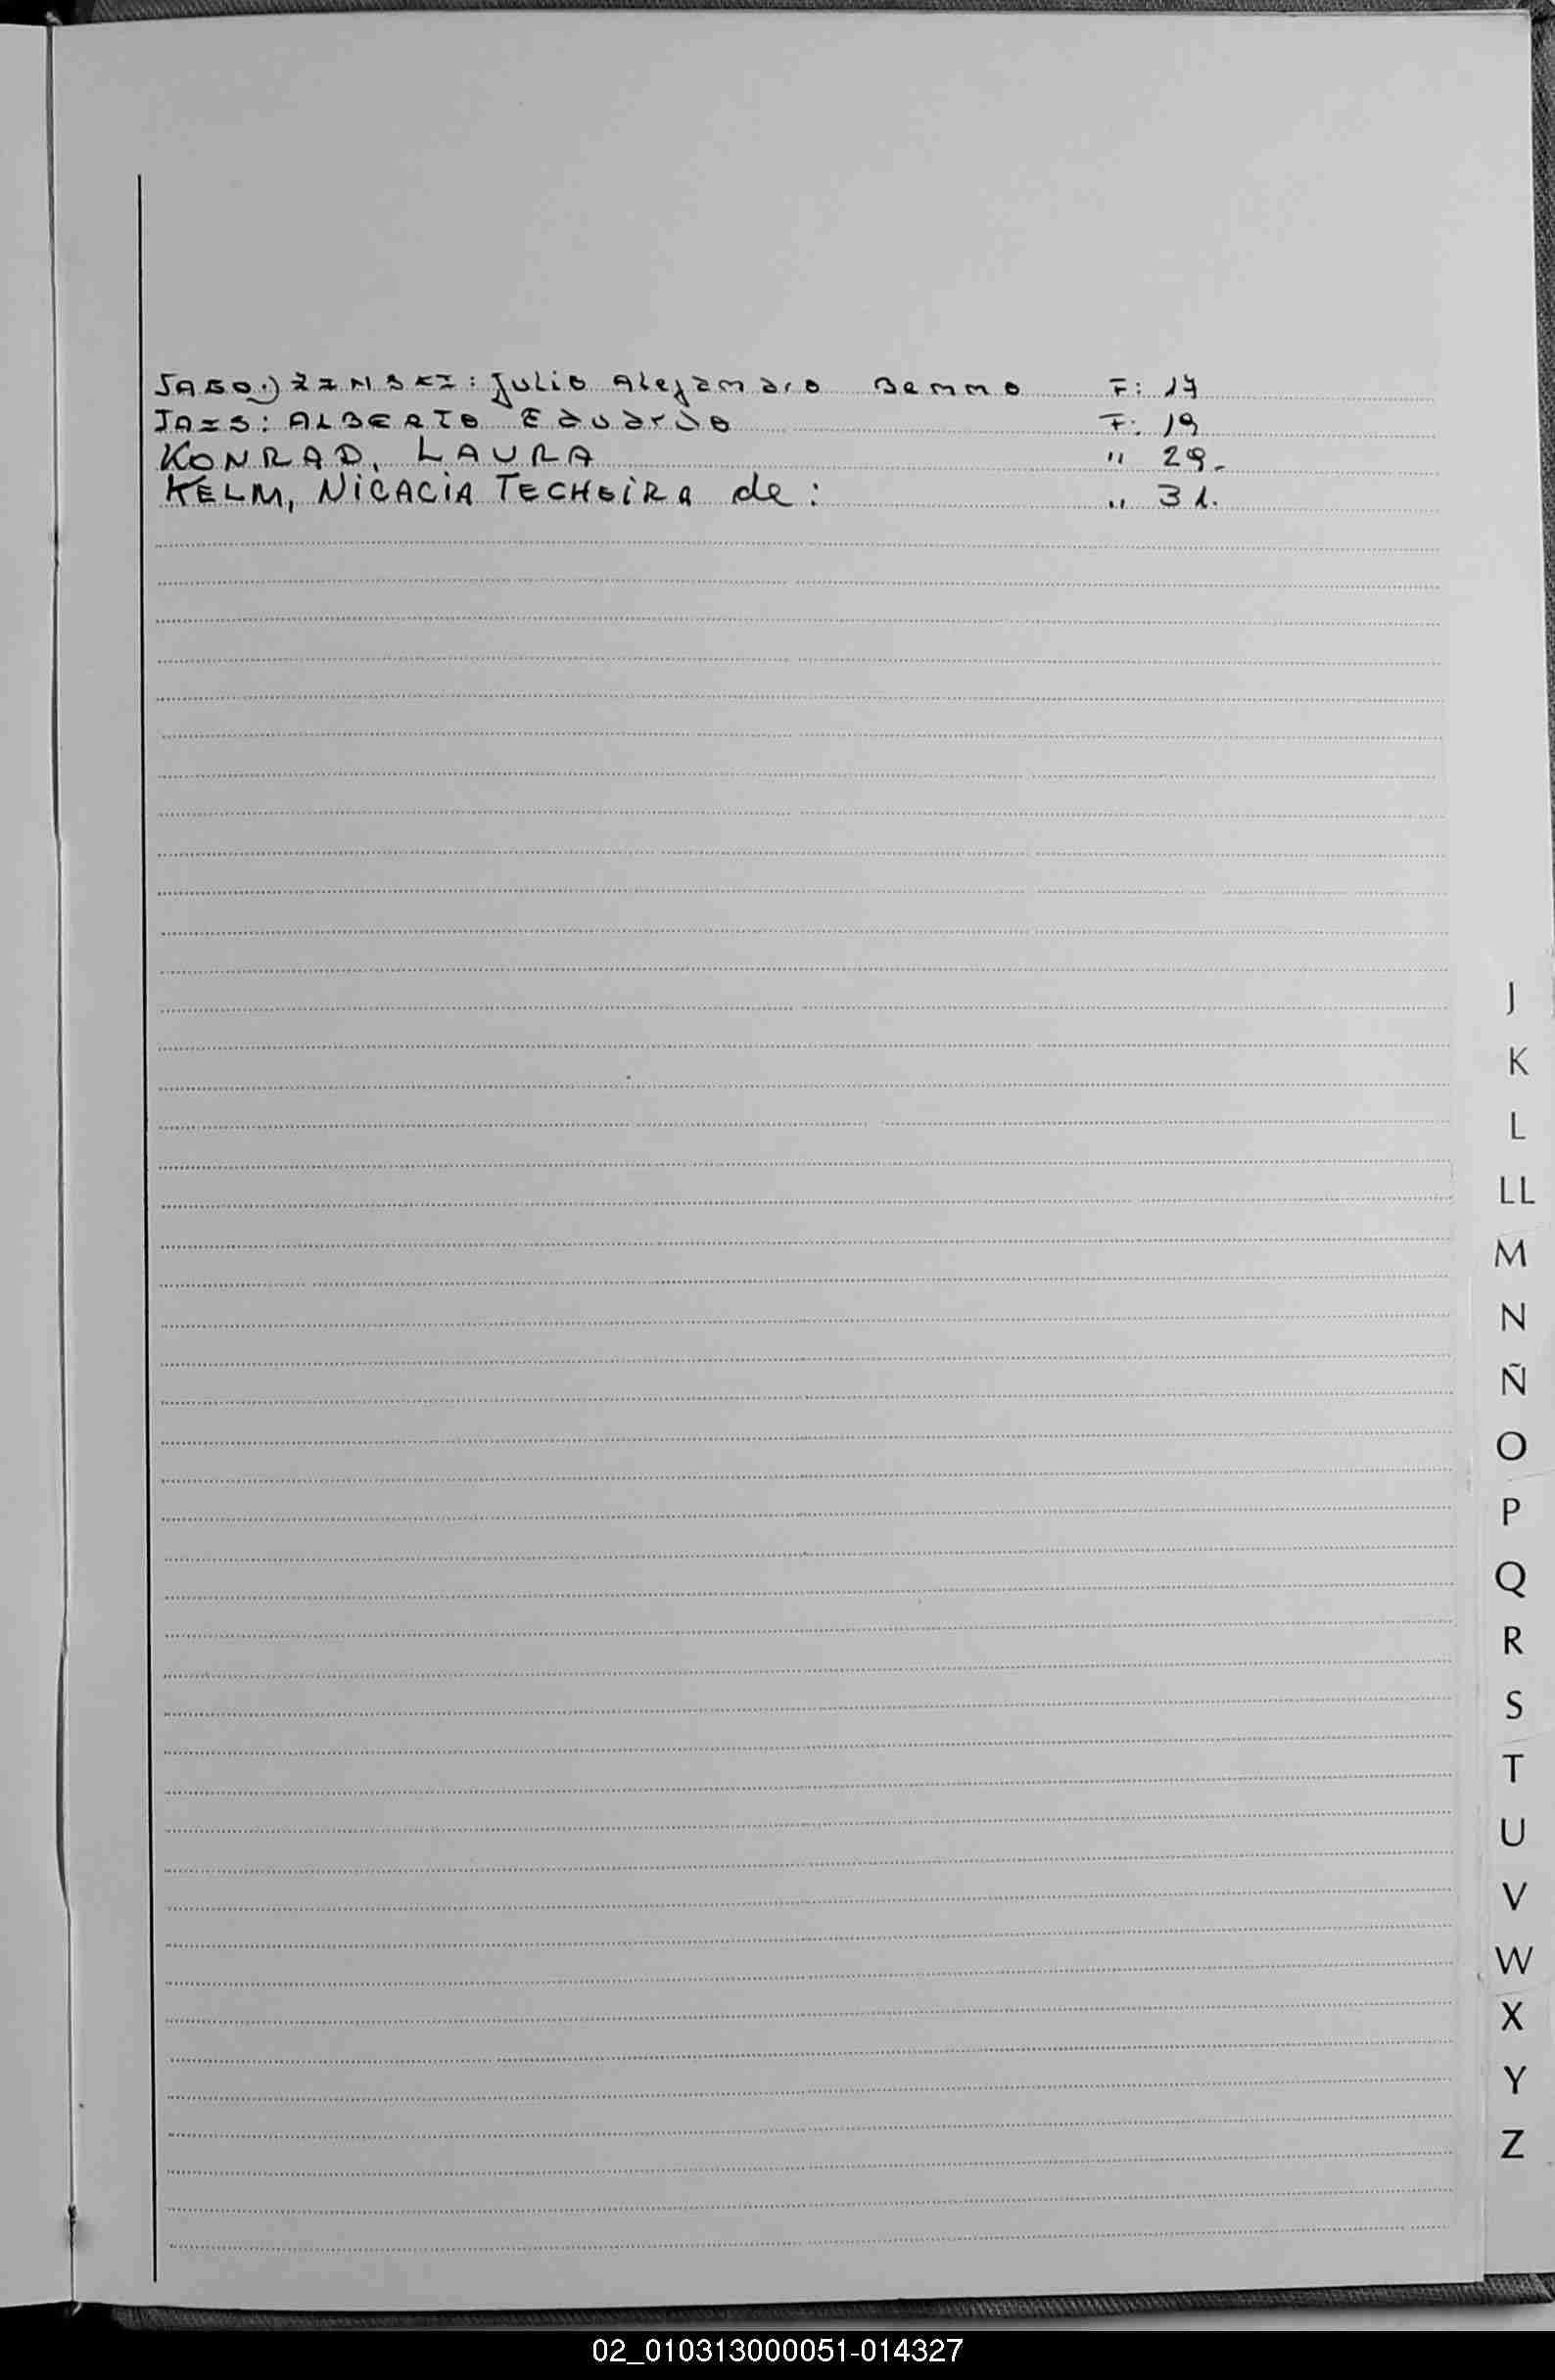 Julio Alejandro Benno F: 17
JAIS: ALBERTO Eduardo F: 19
KONRAD, LAURA " 29.
KELM, NICACIA TECHEIRA de: " 31.
J
K
L
LL
M
N
Ñ
O
P
Q
R
S
T
U
V
W
X
Y
Z
02_010313000051-014327